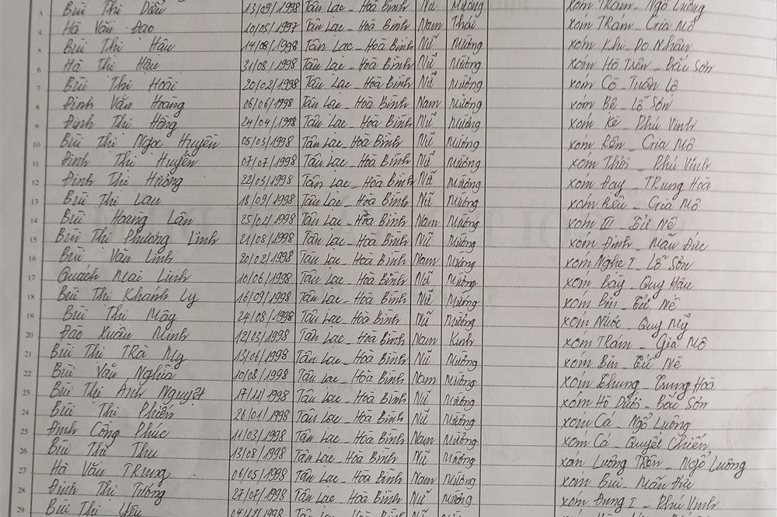 3 Bùi Thị Diễu 13/09/1998 Tân Lạc - Hoà Bình Nữ Mường xóm Trám - Ngổ Luông
4 Hà Văn Đạo 10/05/1997 Tân Lạc - Hoà Bình Nam Thái xóm Trám - Gia Mô
5 Bùi Thị Hậu 14/08/1998 Tân Lạc - Hoà Bình Nữ Mường xóm Khi Do Nhân
6 Hà Thị Hậu 31/08/1998 Tân Lạc - Hoà Bình Nữ Mường xóm Hò Trên - Bắc Sơn
7 Bùi Thị Hoài 20/02/1998 Tân Lạc - Hoà Bình Nữ Mường xóm Cộ - Tuân Lộ
8 Đinh Văn Hoàng 06/06/1998 Tân Lạc - Hoà Bình Nam Mường xóm Bệ - Lỗ Sơn
9 Đinh Thị Hồng 24/04/1998 Tân Lạc - Hoà Bình Nữ Mường xóm Kè - Phú Vinh
10 Bùi Thị Ngọc Huyền 05/03/1998 Tân Lạc - Hoà Bình Nữ Mường xóm Rên - Gia Mô
11 Đinh Thị Huyền 07/07/1998 Tân Lạc - Hoà Bình Nữ Mường xóm Thỏi - Phú Vinh
12 Đinh Thị Hường 22/03/1998 Tân Lạc - Hoà Bình Nữ Mường xóm Hay - Trung Hoà
13 Bùi Thị Lan 18/09/1998 Tân Lạc - Hoà Bình Nữ Mường xóm Rên - Gia Mô
14 Bùi Hoàng Lân 25/02/1998 Tân Lạc - Hoà Bình Nam Mường xóm III - Tử Nê
15 Bùi Thị Phương Linh 21/08/1998 Tân Lạc - Hoà Bình Nữ Mường xóm Định - Mãn Đức
16 Bùi Văn Linh 20/02/1998 Tân Lạc - Hoà Bình Nam Mường xóm Nghẹ I - Lỗ Sơn
17 Quách Mai Linh 10/06/1998 Tân Lạc - Hoà Bình Nữ Mường xóm Bảy - Quy Hậu
18 Bùi Thị Khánh Ly 16/09/1998 Tân Lạc - Hoà Bình Nữ Mường xóm Bin - Tử Nê
19 Bùi Thị Mây 24/08/1998 Tân Lạc - Hoà Bình Nữ Mường xóm Nước - Quy Mỹ
20 Đào Xuân Ninh 12/03/1998 Tân Lạc - Hoà Bình Nam Kinh xóm Trám - Gia Mô
21 Bùi Thị Trà My 13/06/1998 Tân Lạc - Hoà Bình Nữ Mường xóm Bin - Tử Nê
22 Bùi Văn Nghĩa 10/08/1998 Tân Lạc - Hoà Bình Nam Mường xóm Thung - Trung Hoà
23 Bùi Thị Ánh Nguyệt 17/12/1998 Tân Lạc - Hoà Bình Nữ Mường xóm Hò Dưới - Bắc Sơn
24 Bùi Thị Phiến 26/01/1998 Tân Lạc - Hoà Bình Nữ Mường xóm Cá - Ngổ Luông
25 Đinh Công Phúc 11/03/1998 Tân Lạc - Hoà Bình Nam Mường xóm Cá - Quyết Chiến
26 Bùi Thị Thu 13/08/1998 Tân Lạc - Hoà Bình Nữ Mường xóm Luông Trên - Ngổ Luông
27 Hà Văn Trung 06/05/1998 Tân Lạc - Hoà Bình Nam Mường xóm Bui - Mãn Đức
28 Đinh Thị Tường 27/07/1998 Tân Lạc - Hoà Bình Nữ Mường xóm Đung I - Phú Vinh
29 Bùi Thị Yến Tân Lạc - Hoà Bình Nữ Mường